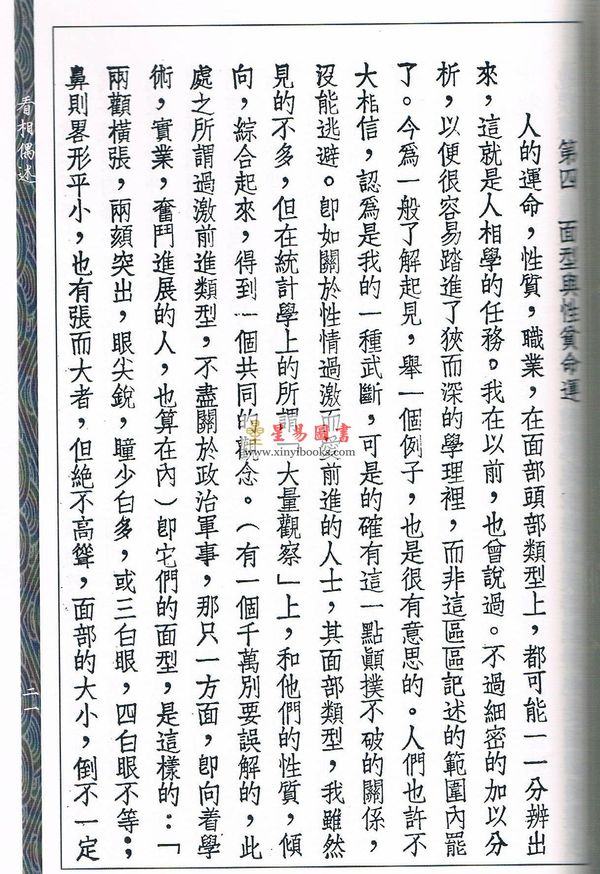 第四　面型與性質命運
人的運命，性質，職業，在面部頭部類型上，都可能一一分辨出
來，這就是人相學的任務。我在以前，也曾說過。不過細密的加以分
析，以便很容易踏進了狹而深的學理裡，而非這區區記述的範圍內罷
了。今爲一般了解起見，舉一個例子，也是很有意思的。人們也許不
大相信，認爲是我的一種武斷，可是的確有這一點顚撲不破的關係，
沒能逃避。卽如關於性情過激而愛前進的人士，其面部類型，我雖然
見的不多，但在統計學上的所謂「大量觀察」上，和他們的性質，傾
向，綜合起來，得到一個共同的觀念。（有一個千萬別要誤解的，此
處之所謂過激前進類型，不盡關於政治軍事，那只一方面，卽向着學
術，實業，奮鬥進展的人，也算在內）卽它們的面型，是這樣的：「
兩顴橫張，兩頦突出，眼尖銳，瞳少白多，或三白眼，四白眼不等；
鼻則畧形平小，也有張而大者，但絕不高聳，面部的大小，倒不一定
看相偶述
二一
星易圖書
www.xinyibooks.com